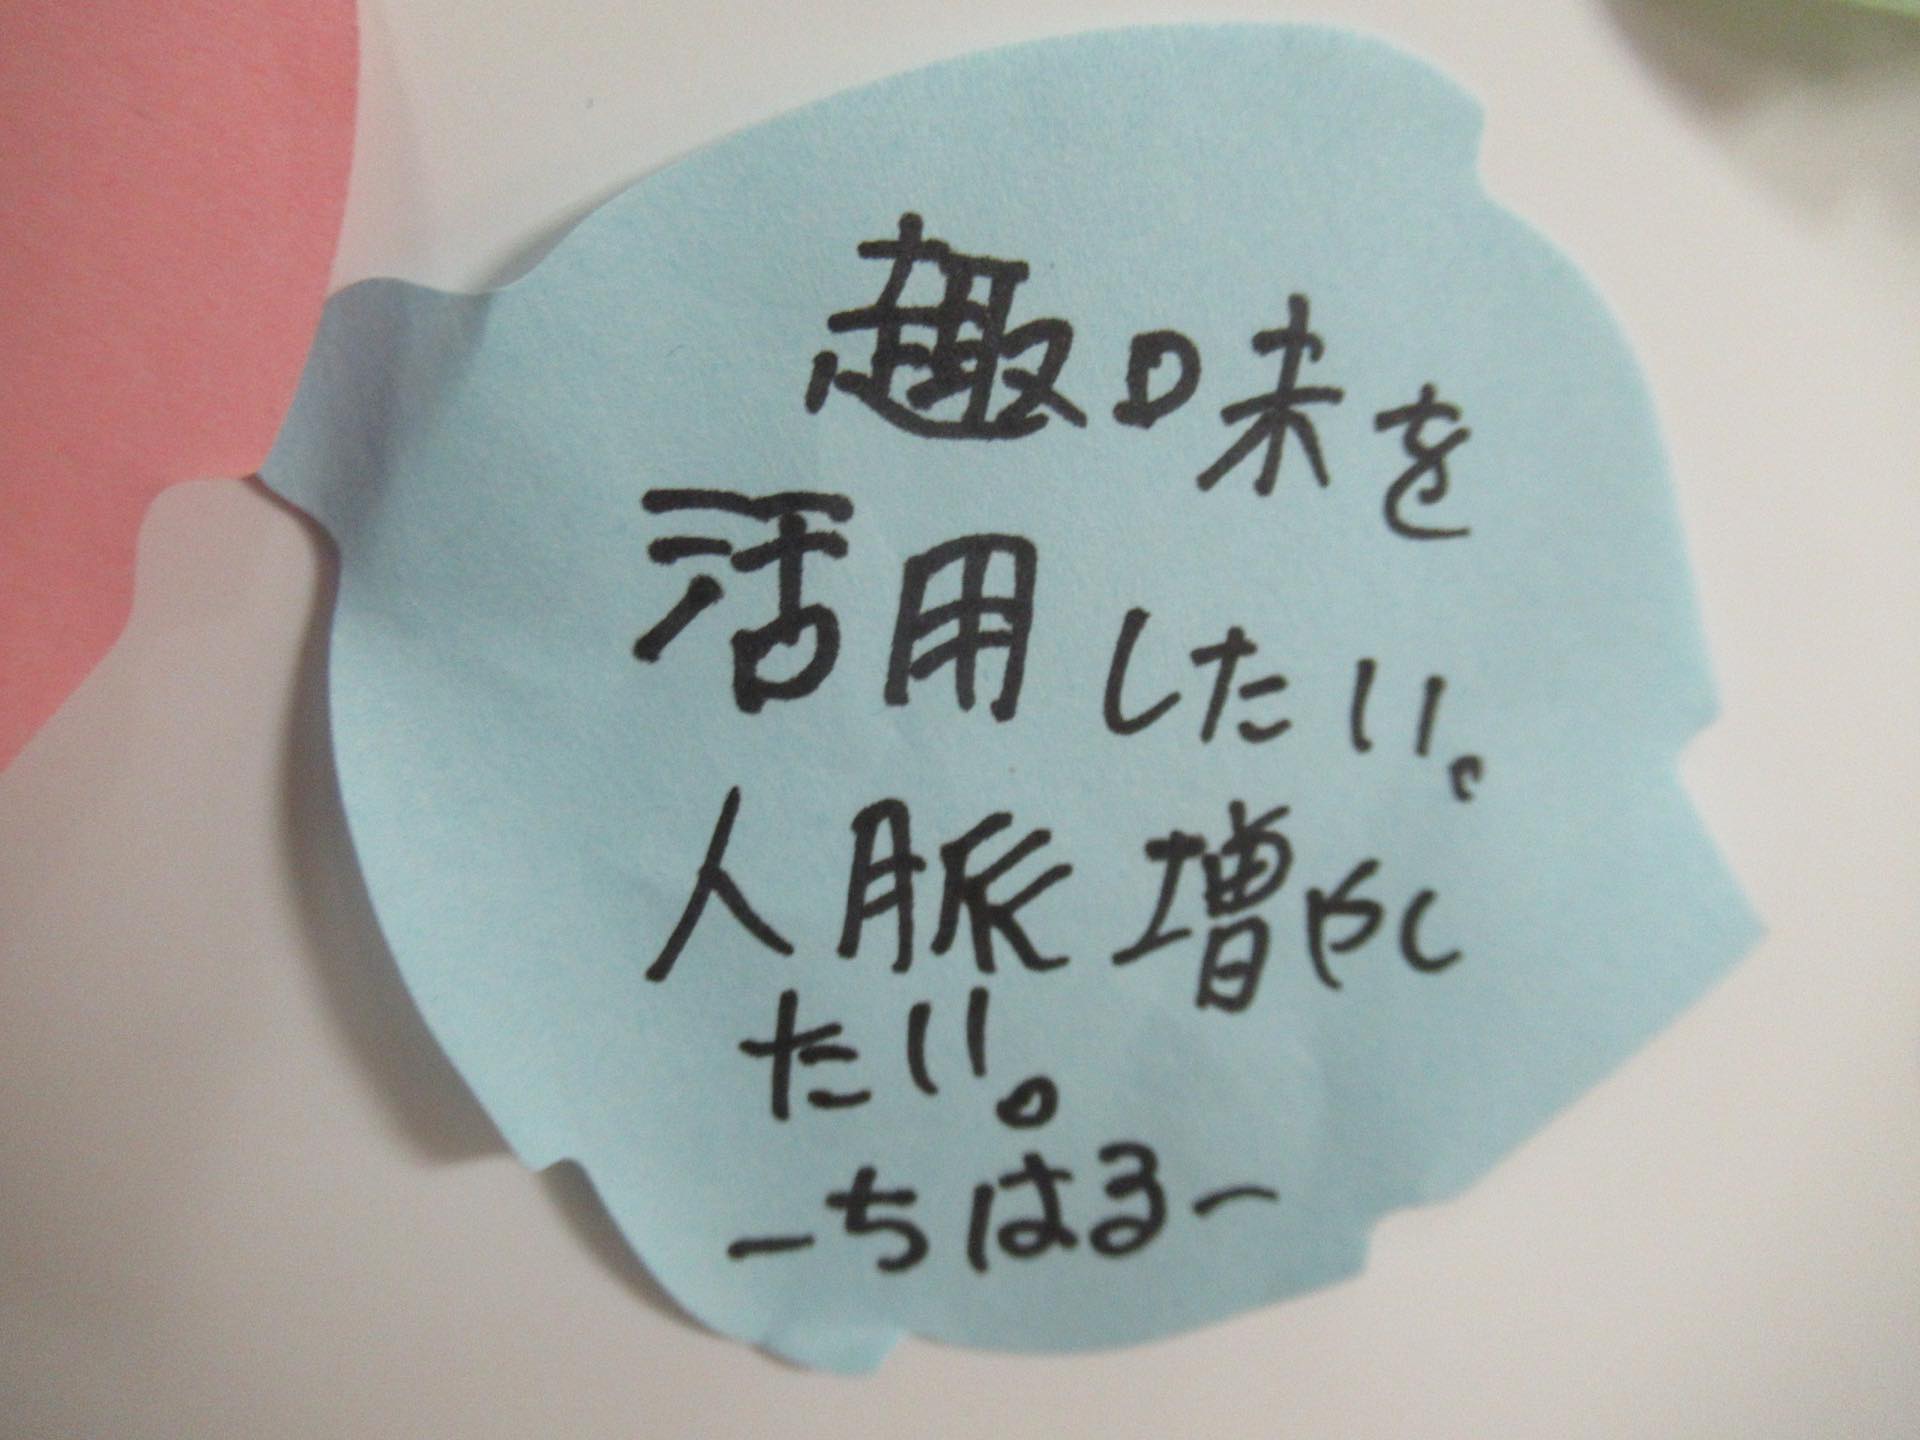 趣味を
活用したい。
人脈増やし
たい。
ーちはるー